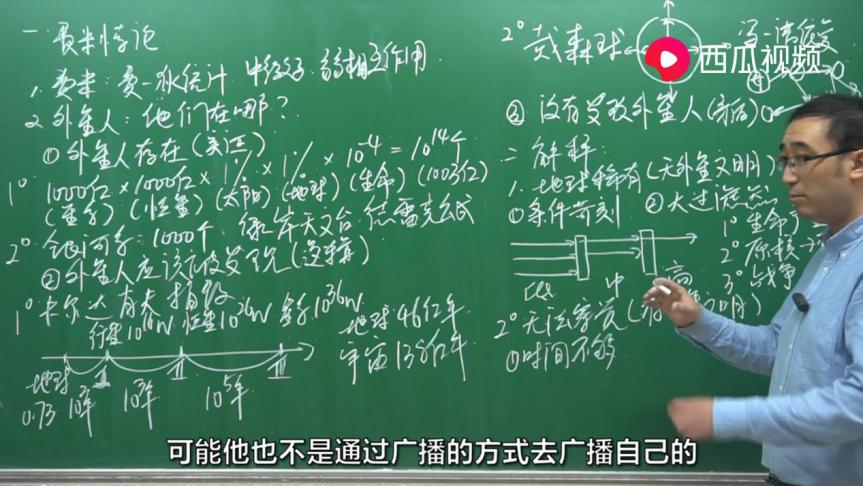 一 费米悖论
1. 费米: 费-狄统计 中微子. 弱相互作用
2. 外星人: 他们在哪?
① 外星人存在
1° 1000亿×1000亿×1%×1%×10⁻⁴=10¹⁴个
(星系)(恒星)(太阳)(地球)(生命)(100亿)
2° 银河系: 1000个 绿岸天文台 德雷克公式
② 外星人应该被发现(逻辑)
1° 卡尔达肖夫指数
行星10¹⁶W 恒星10²⁶W 星系10³⁶W
地球46亿年
宇宙138亿年
地球 I II III
0.73 10²年 10³年 10⁵年
2° 戴森球
冯-诺依曼
③ 没有发现外星人(射电)
二 解释:
1. 地球稀有(无外星文明)
① 条件苛刻 ② 大过滤器
1° 生命
2° 原核→
3° 战争
低 中 高
2° 无法察觉(有 文明)
① 时间不够
西瓜视频
可能他也不是通过广播的方式去广播自己的